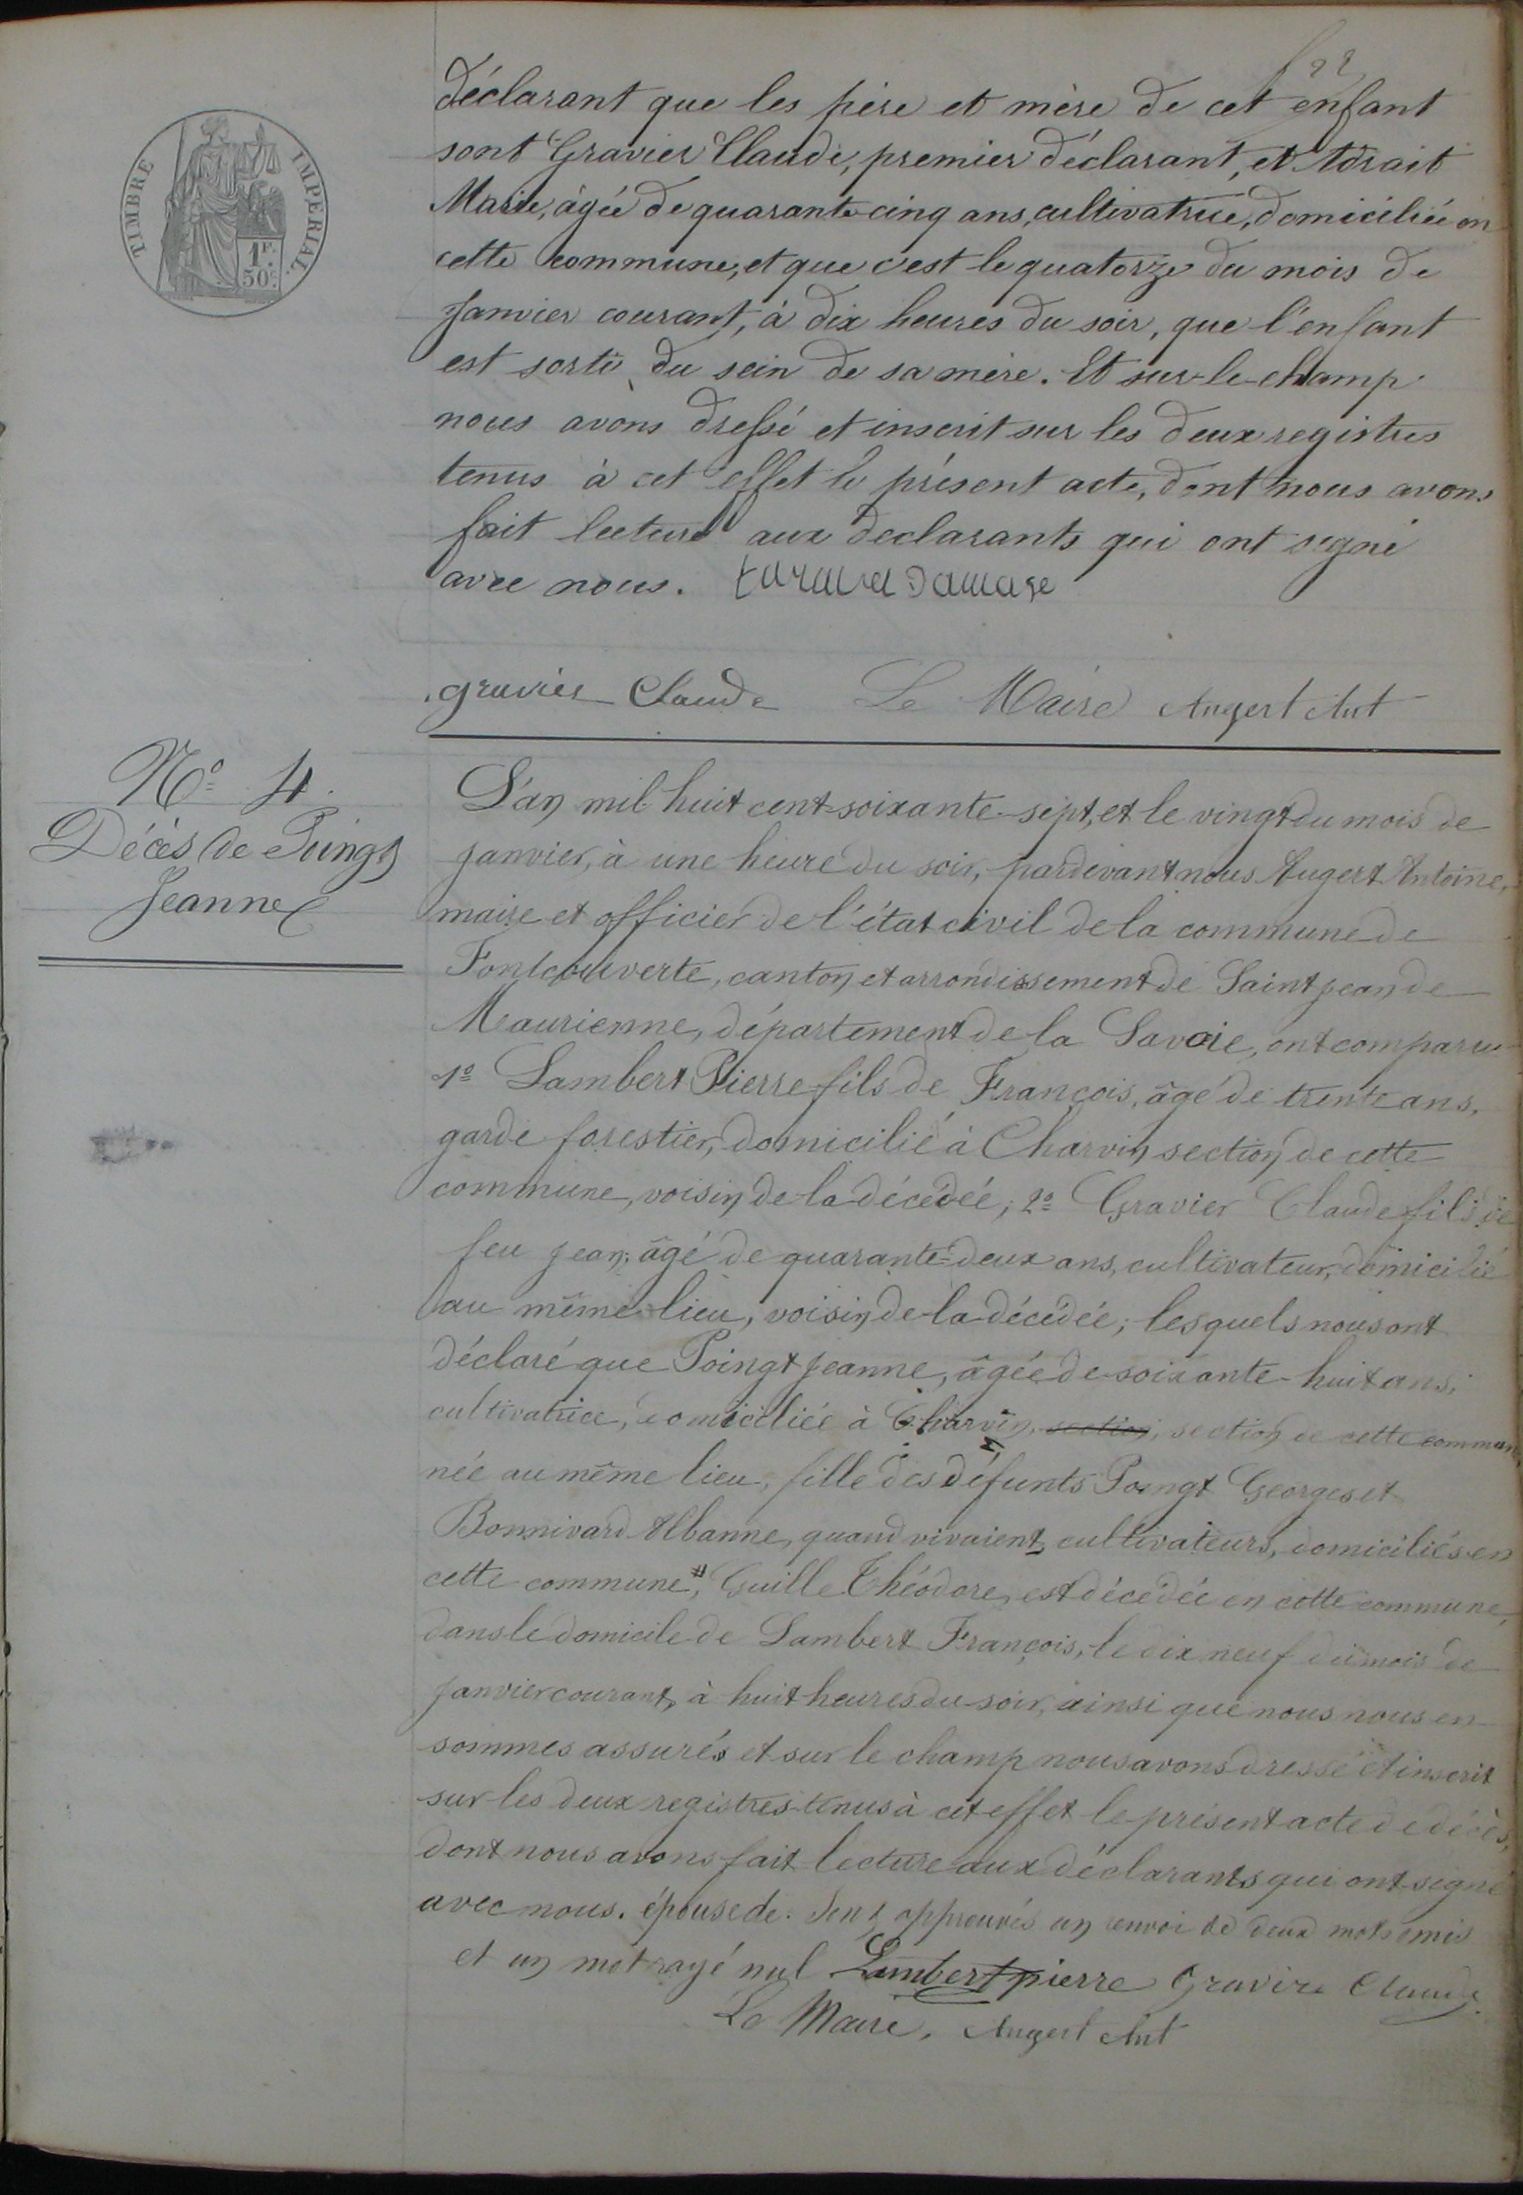 TIMBRE IMPERIAL.
1F.
50c
déclarant que les père et mère de cet enfant
sont Gravier Claude, premier déclarant, et Adrait
Marie, âgée de quarante-cinq ans, cultivatrice, domiciliée en
cette commune, et que c'est le quatorze du mois de
Janvier courant, à dix heures du soir, que l'enfant
est sorti du sein de sa mère. Et sur-le-champ
nous avons dressé et inscrit sur les deux registres
tenus à cet effet le présent acte, dont nous avons
fait lecture aux declarants qui ont signé
avec nous. Damase
gravier Claude Le Maire Augert Ant
N° 4.
Décès de Poingt
Jeanne
L'an mil huit cent soixante-sept, et le vingt du mois de
janvier, à une heure du soir, pardevant nous Augert Antoine,
maire et officier de l'état civil de la commune de
Fontcouverte, canton et arrondissement de Saint jean de
Maurienne, département de la Savoie, ont comparu
1° Lambert Pierre fils de François, âgé de trente ans,
garde forestier, domicilié à Charvin section de cette
commune, voisin de la décédée; 2° Gravier Claude fils de
feu jean, âgé de quarante-deux ans, cultivateur, domicilié
au même lieu, voisin de la décédée; lesquels nous ont
déclaré que Poingt jeanne, âgée de soixante-huit ans,
cultivatrice, domiciliée à Charvin, section, section de cette commune,
née au même lieu, fille des défunts Poingt Georges et
Bonnivard Albanne, quand vivaient, cultivateurs, domiciliés en
cette commune #, Guille Théodore, est décédée en cette commune,
dans le domicile de Lambert François, le dix neuf du mois de
janvier courant, à huit heures du soir, ainsi que nous nous en
sommes assurés et sur le champ nous avons dressé et inscrit
sur les deux registres tenus à cet effet le présent acte de décès,
dont nous avons fait lecture aux déclarants qui ont signé
avec nous. épouse de. Sont approuvés un renvoi de deux mots omis
et un mot rayé nul Lambert pierre Gravier Claude
Le Maire, Augert Ant